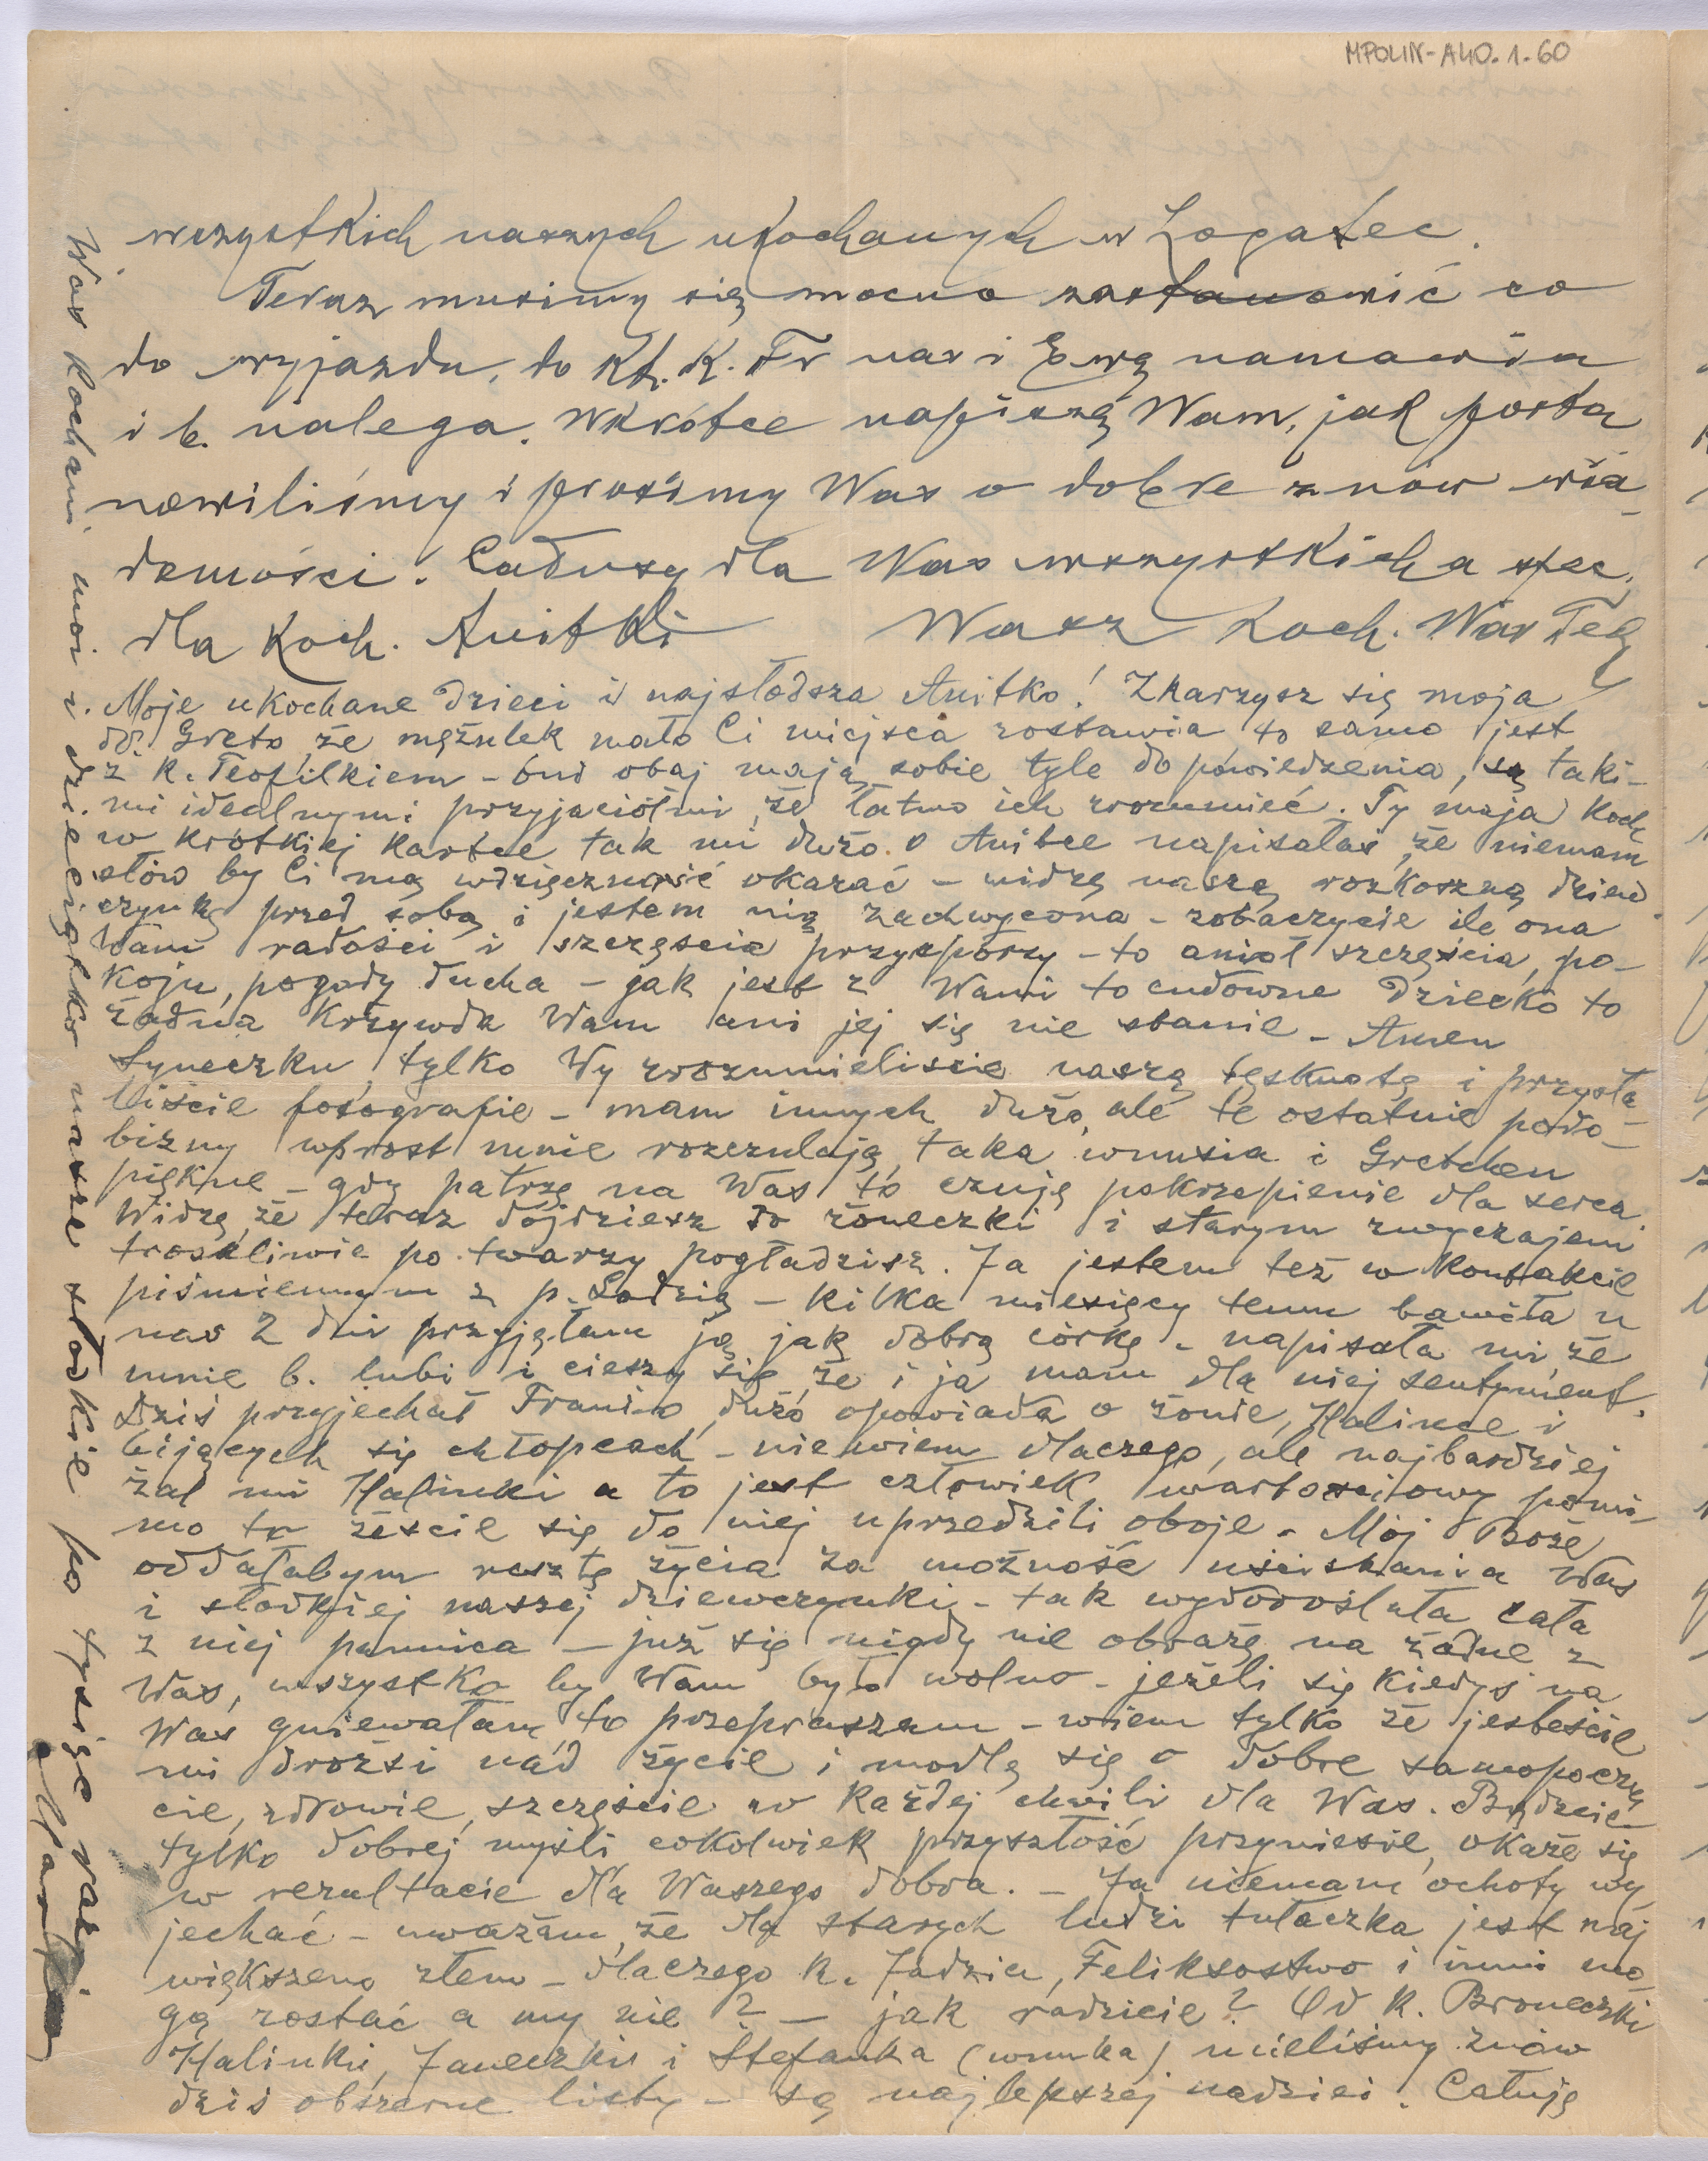 MPOLIN-A40.1.60
wszystkich naszych ukochanych w Logatec.
Teraz musimy się mocno zastanowić co
do wyjazdu, to Kt. K. Fr nas i Ewę namawia
i b. nalega. Wkrótce napiszę Wam, jak posta
nowiliśmy i prosimy Was o dobre znów wia-
domości. Całusy dla Was wszystkich a spec.
dla Koch. Anitki Wasz Koch. Was Teo
Moje ukochane Dzieci i najsłodsza Anitko! Skarzysz się moja
dr. Greto, że mężulek mało Ci miejsca zostawia to samo jest
z K. Teofilkiem - oni obaj mają sobie tyle do powiedzenia, są taki-
mi idealnymi przyjaciółmi, że łatwo ich zrozumieć. Ty moja Koch
w krótkiej kartce tak mi dużo o Anitce napisałaś, że niemam
słów by Ci mą wdzięczność okazać - widzę naszą rozkoszną dziew
czynkę przed sobą i jestem nią zachwycona - zobaczycie ile ona
Wam radości i szczęścia przysporzy - to anioł szczęścia, po-
koju, pogody ducha - jak jest z Wami to cudowne Dziecko to
żadna Krzywda Wam ani jej się nie stanie - Amen
Syneczku, tylko Wy zrozumieliście naszą tęsknotę i przysła
liście fotografie - mam innych dużo, ale te ostatnie podo-
bizny wprost mnie rozczulają, taka wnusia i Gretchen
piękne - gdy patrzę na Was to czuję pokrzepienie dla serca.
Widzę, że teraz dojdziesz do żoneczki i starym zwyczajem
troskliwie po twarzy pogładzisz. Ja jestem też w kontakcie
piśmiennym z p. Lodzią - kilka miesięcy temu bawiła u
nas 2 dni przyjęłam ją jak dobrą córkę - napisała mi, że
mnie b. lubi i cieszy się, że i ja mam dla niej sentyment.
Dziś przyjechał Franio, dużo opowiada o żonie, Halince i
bijących się chłopcach - nie wiem dlaczego, ale najbardziej
żal mi Halinki a to jest człowiek wartościowy pomi-
mo to żeście się do niej uprzedzili oboje - Mój Boże
oddałabym resztę życia za możność uściskania Was
i słodkiej naszej dziewczynki - tak wydoroślała cała
z niej pannica - już się nigdy nie obrażę na żadne z
Was, wszystko by Wam było wolno - jeżeli się kiedyś na
Was gniewałam, to przepraszam - wiem tylko że jesteście
mi drożsi nad życie i modlę się o dobre samopoczu
cie, zdrowie, szczęście w każdej chwili dla Was. Bądźcie
tylko dobrej myśli cokolwiek przyszłość przyniesie, okaże się
w rezultacie dla Waszego dobra. - Ja niemam ochoty wy
jechać - uważam, że dla starych ludzi tułaczka jest naj
większem złem - dlaczego K. Jadzia, Feliksostwo i inni mo-
gą zostać a my nie? - jak radzicie? Od K. Broneczki
Halinki, Janeczki i Stefanka (wnuka) mieliśmy znów
dziś obszerne listy - są najlepszej nadziei. Całuję
Was kochani moi i dzieciątko nasze słodkie po tysiąc razy